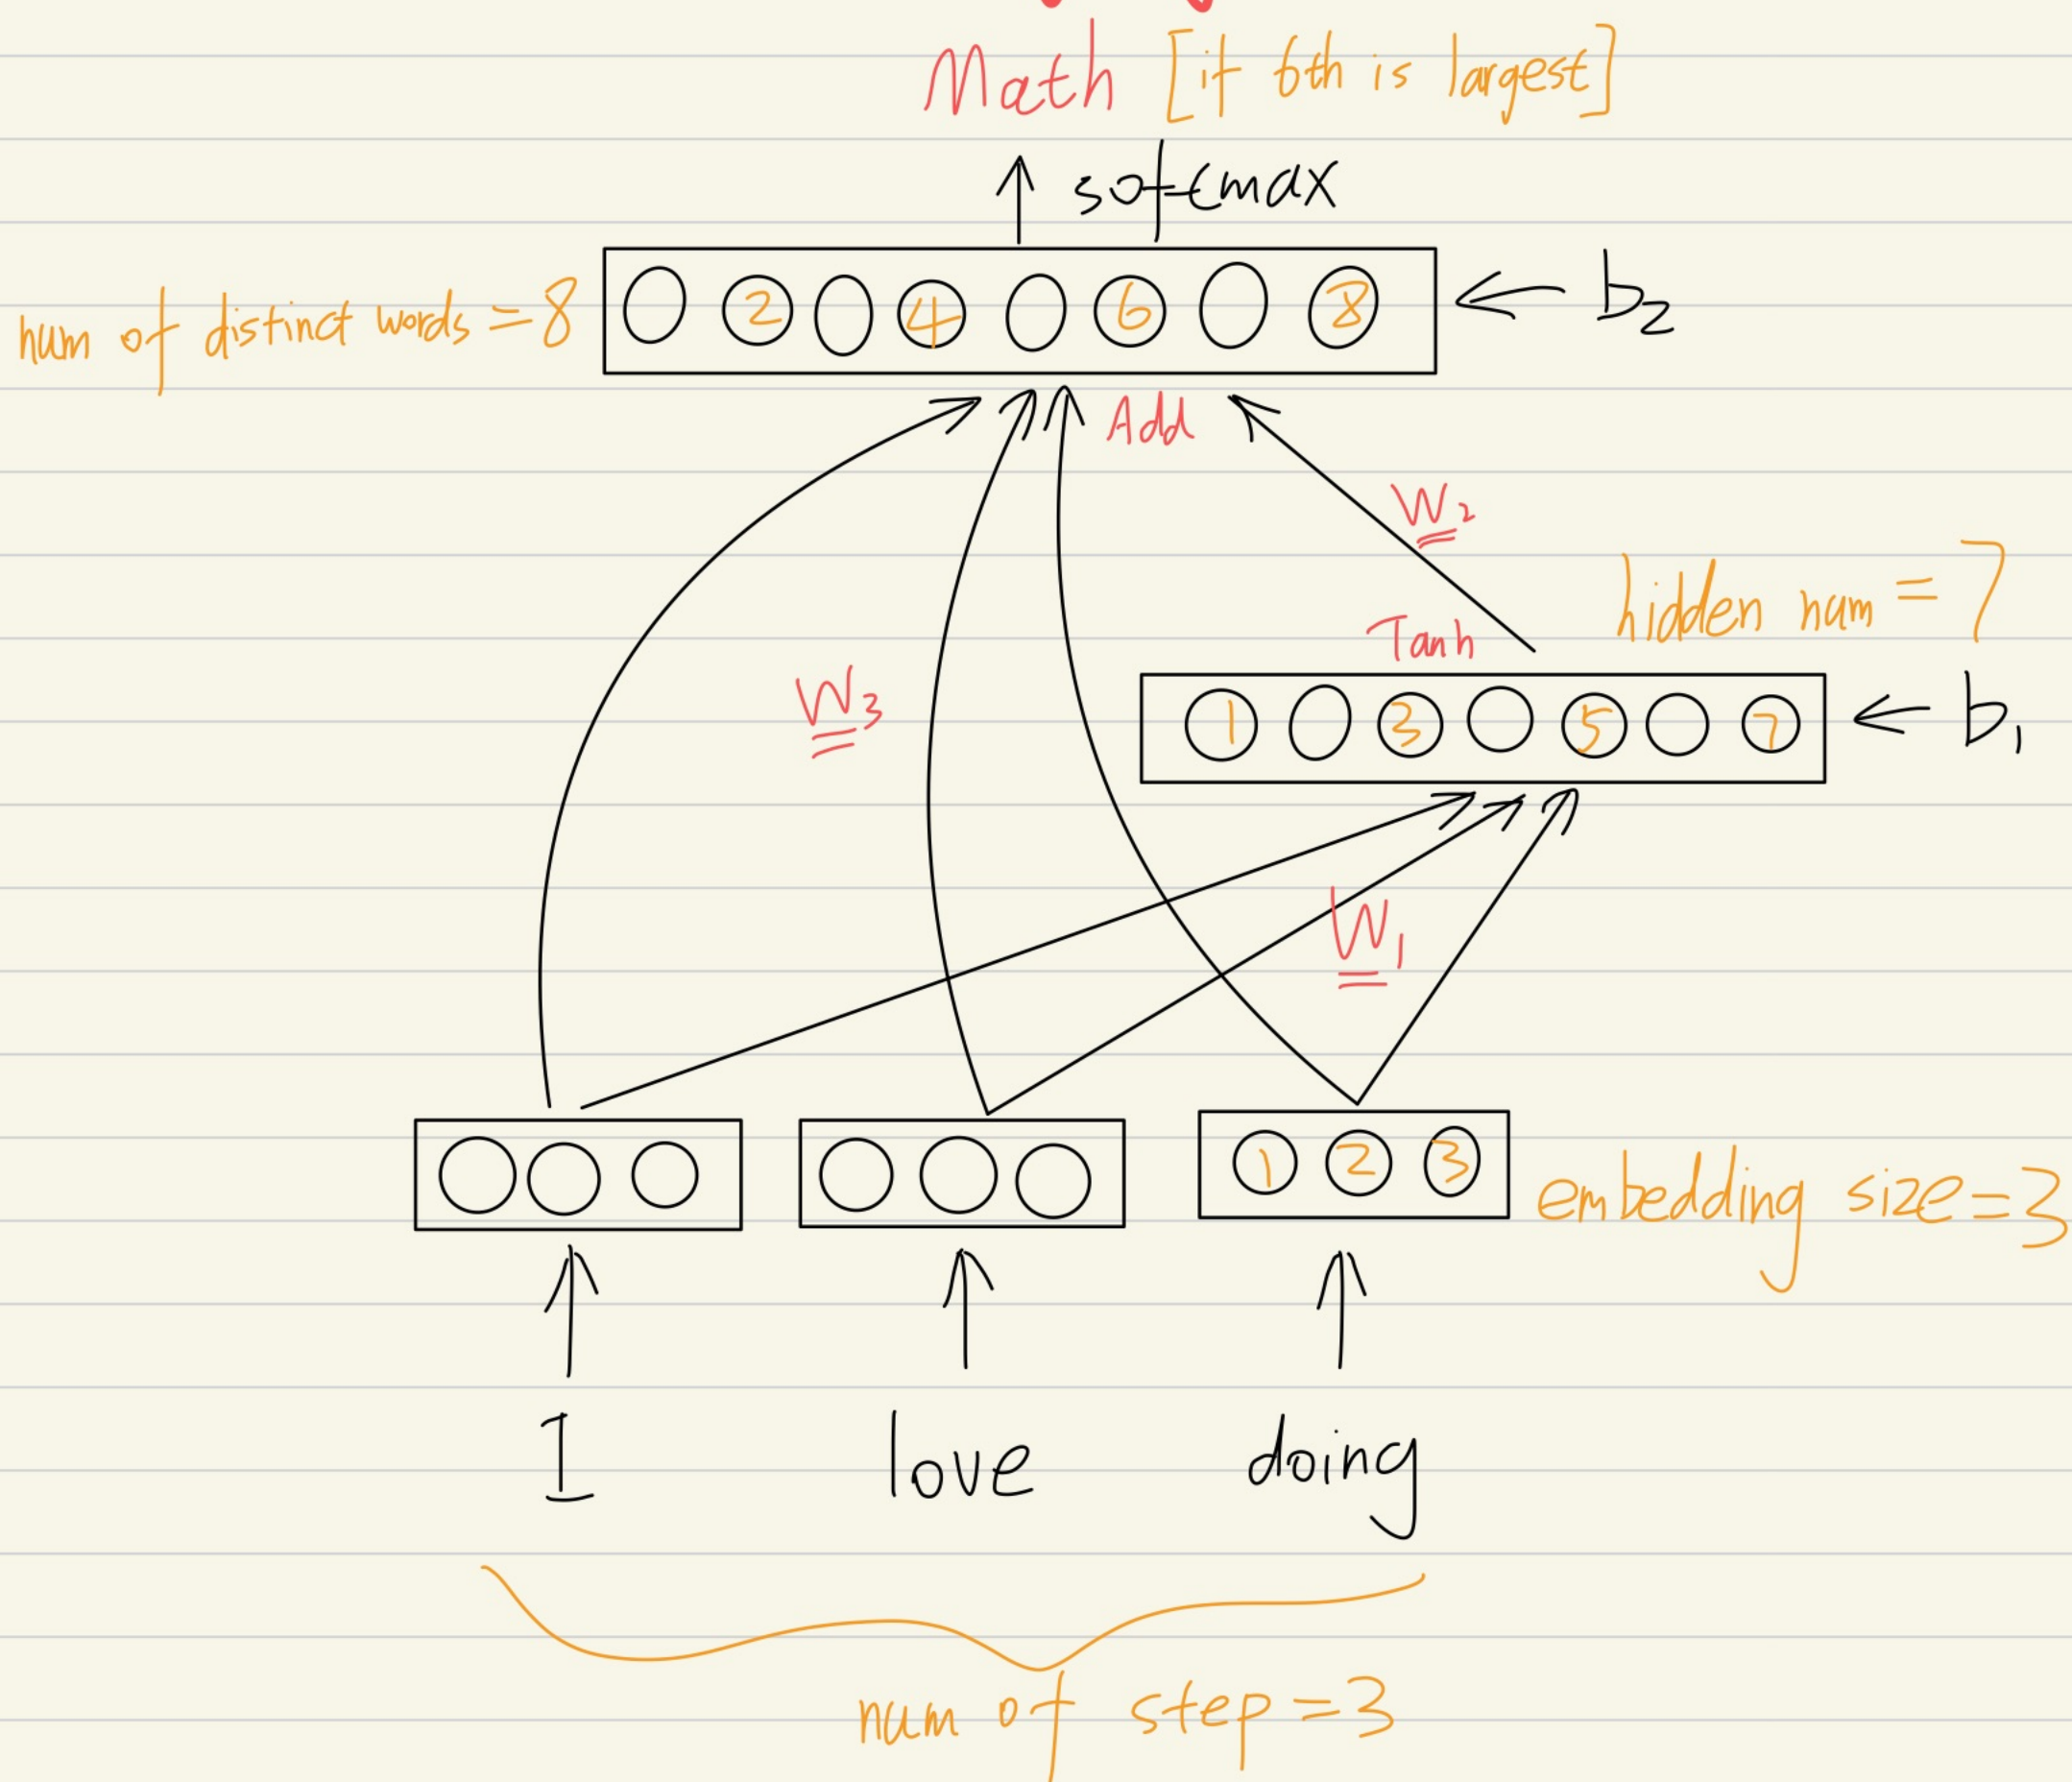 Math [if 6th is largest]
softmax
num of distinct words = 8
2 4 6 8
b2
Add
W2
hidden num = 7
Tanh
W3
1 3 5 7
b1
W1
1 2 3
embedding size = 3
I love doing
num of step = 3